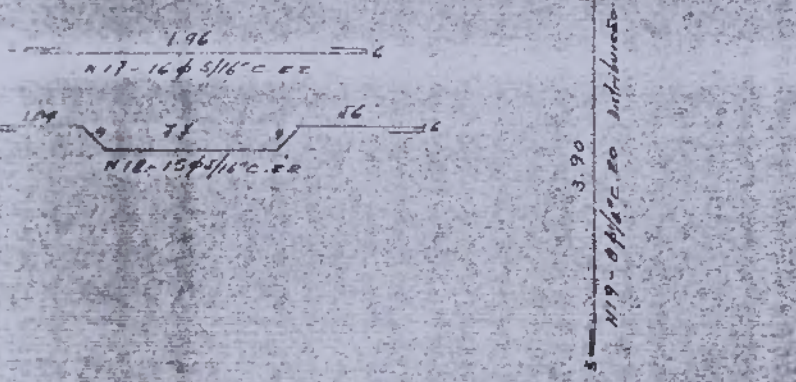 1.96 6
N17-16 φ 5/16" C. 22
9 9 56 6
N18-15 φ 5/16" C. 22
3.90
5
N19-8 φ 1/2" C. 20 Distribuição